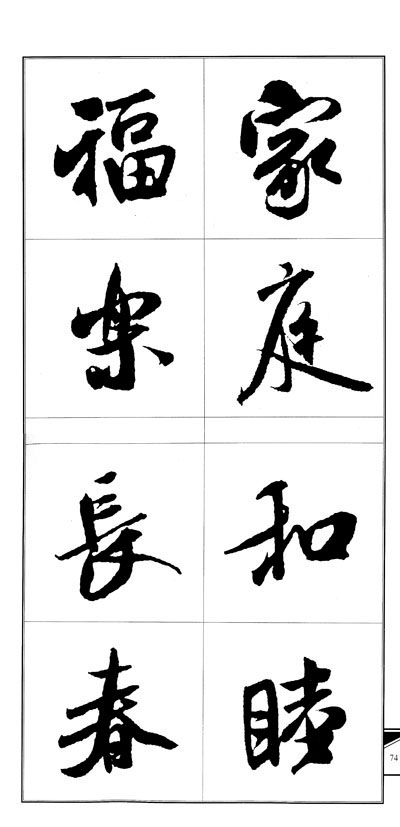 家庭和睦
福樂長春
74